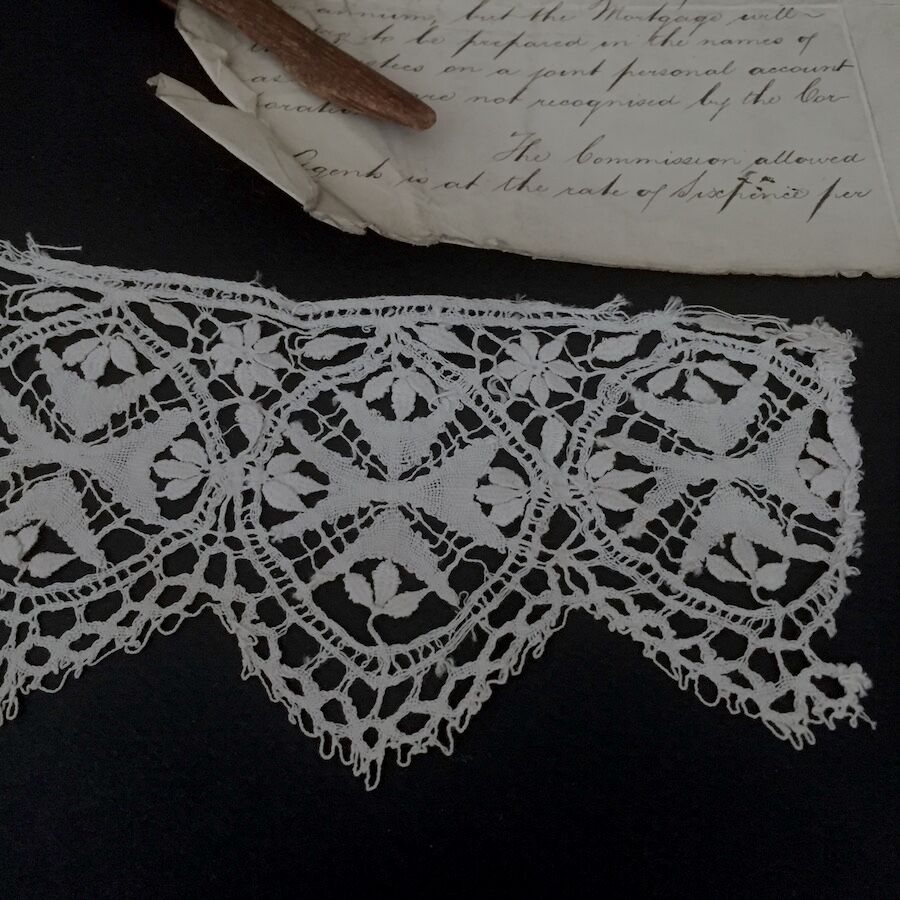 annum, but the Mortgage will
to be prepared in the names of
as on a joint personal account
are not recognised by the Cor-
The Commission allowed
Agents is at the rate of Sixpence per